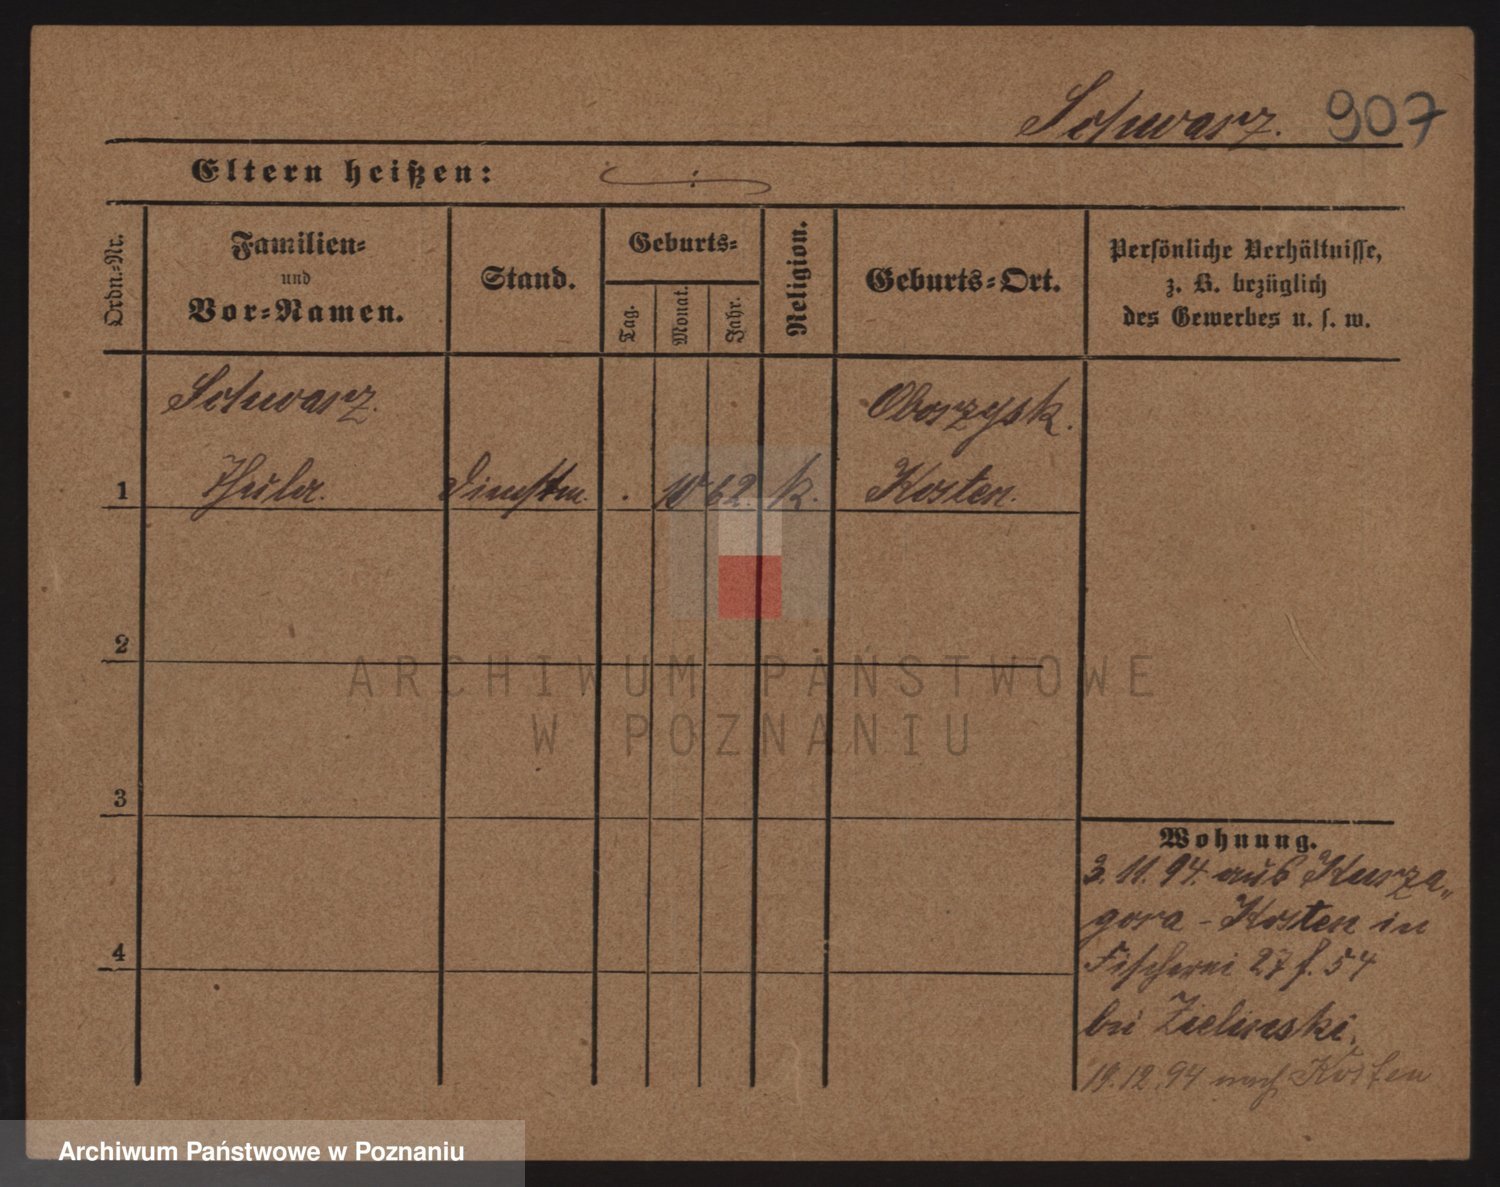 Schwarz. 907
Eltern heißen:
Ordn.-Nr.
Familien-
und
Vor-Namen.
Stand.
Geburts-
Tag.
Monat.
Jahr.
Religion.
Geburts-Ort.
Persönliche Verhältnisse,
z. B. bezüglich
des Gewerbes u. s. w.
Schwarz.
Oborzysk.
1 Thula. Dienstm. . 10 62. k. Kosten.
2
ARCHIWUM PAŃSTWOWE
W POZNANIU
3
Wohnung.
3. 11. 94. aus Kurza„
gora - Kosten in
4
Fischerei 27 f. 54
bei Zielinski,
19. 12. 94 nach Kosten
Archiwum Państwowe w Poznaniu